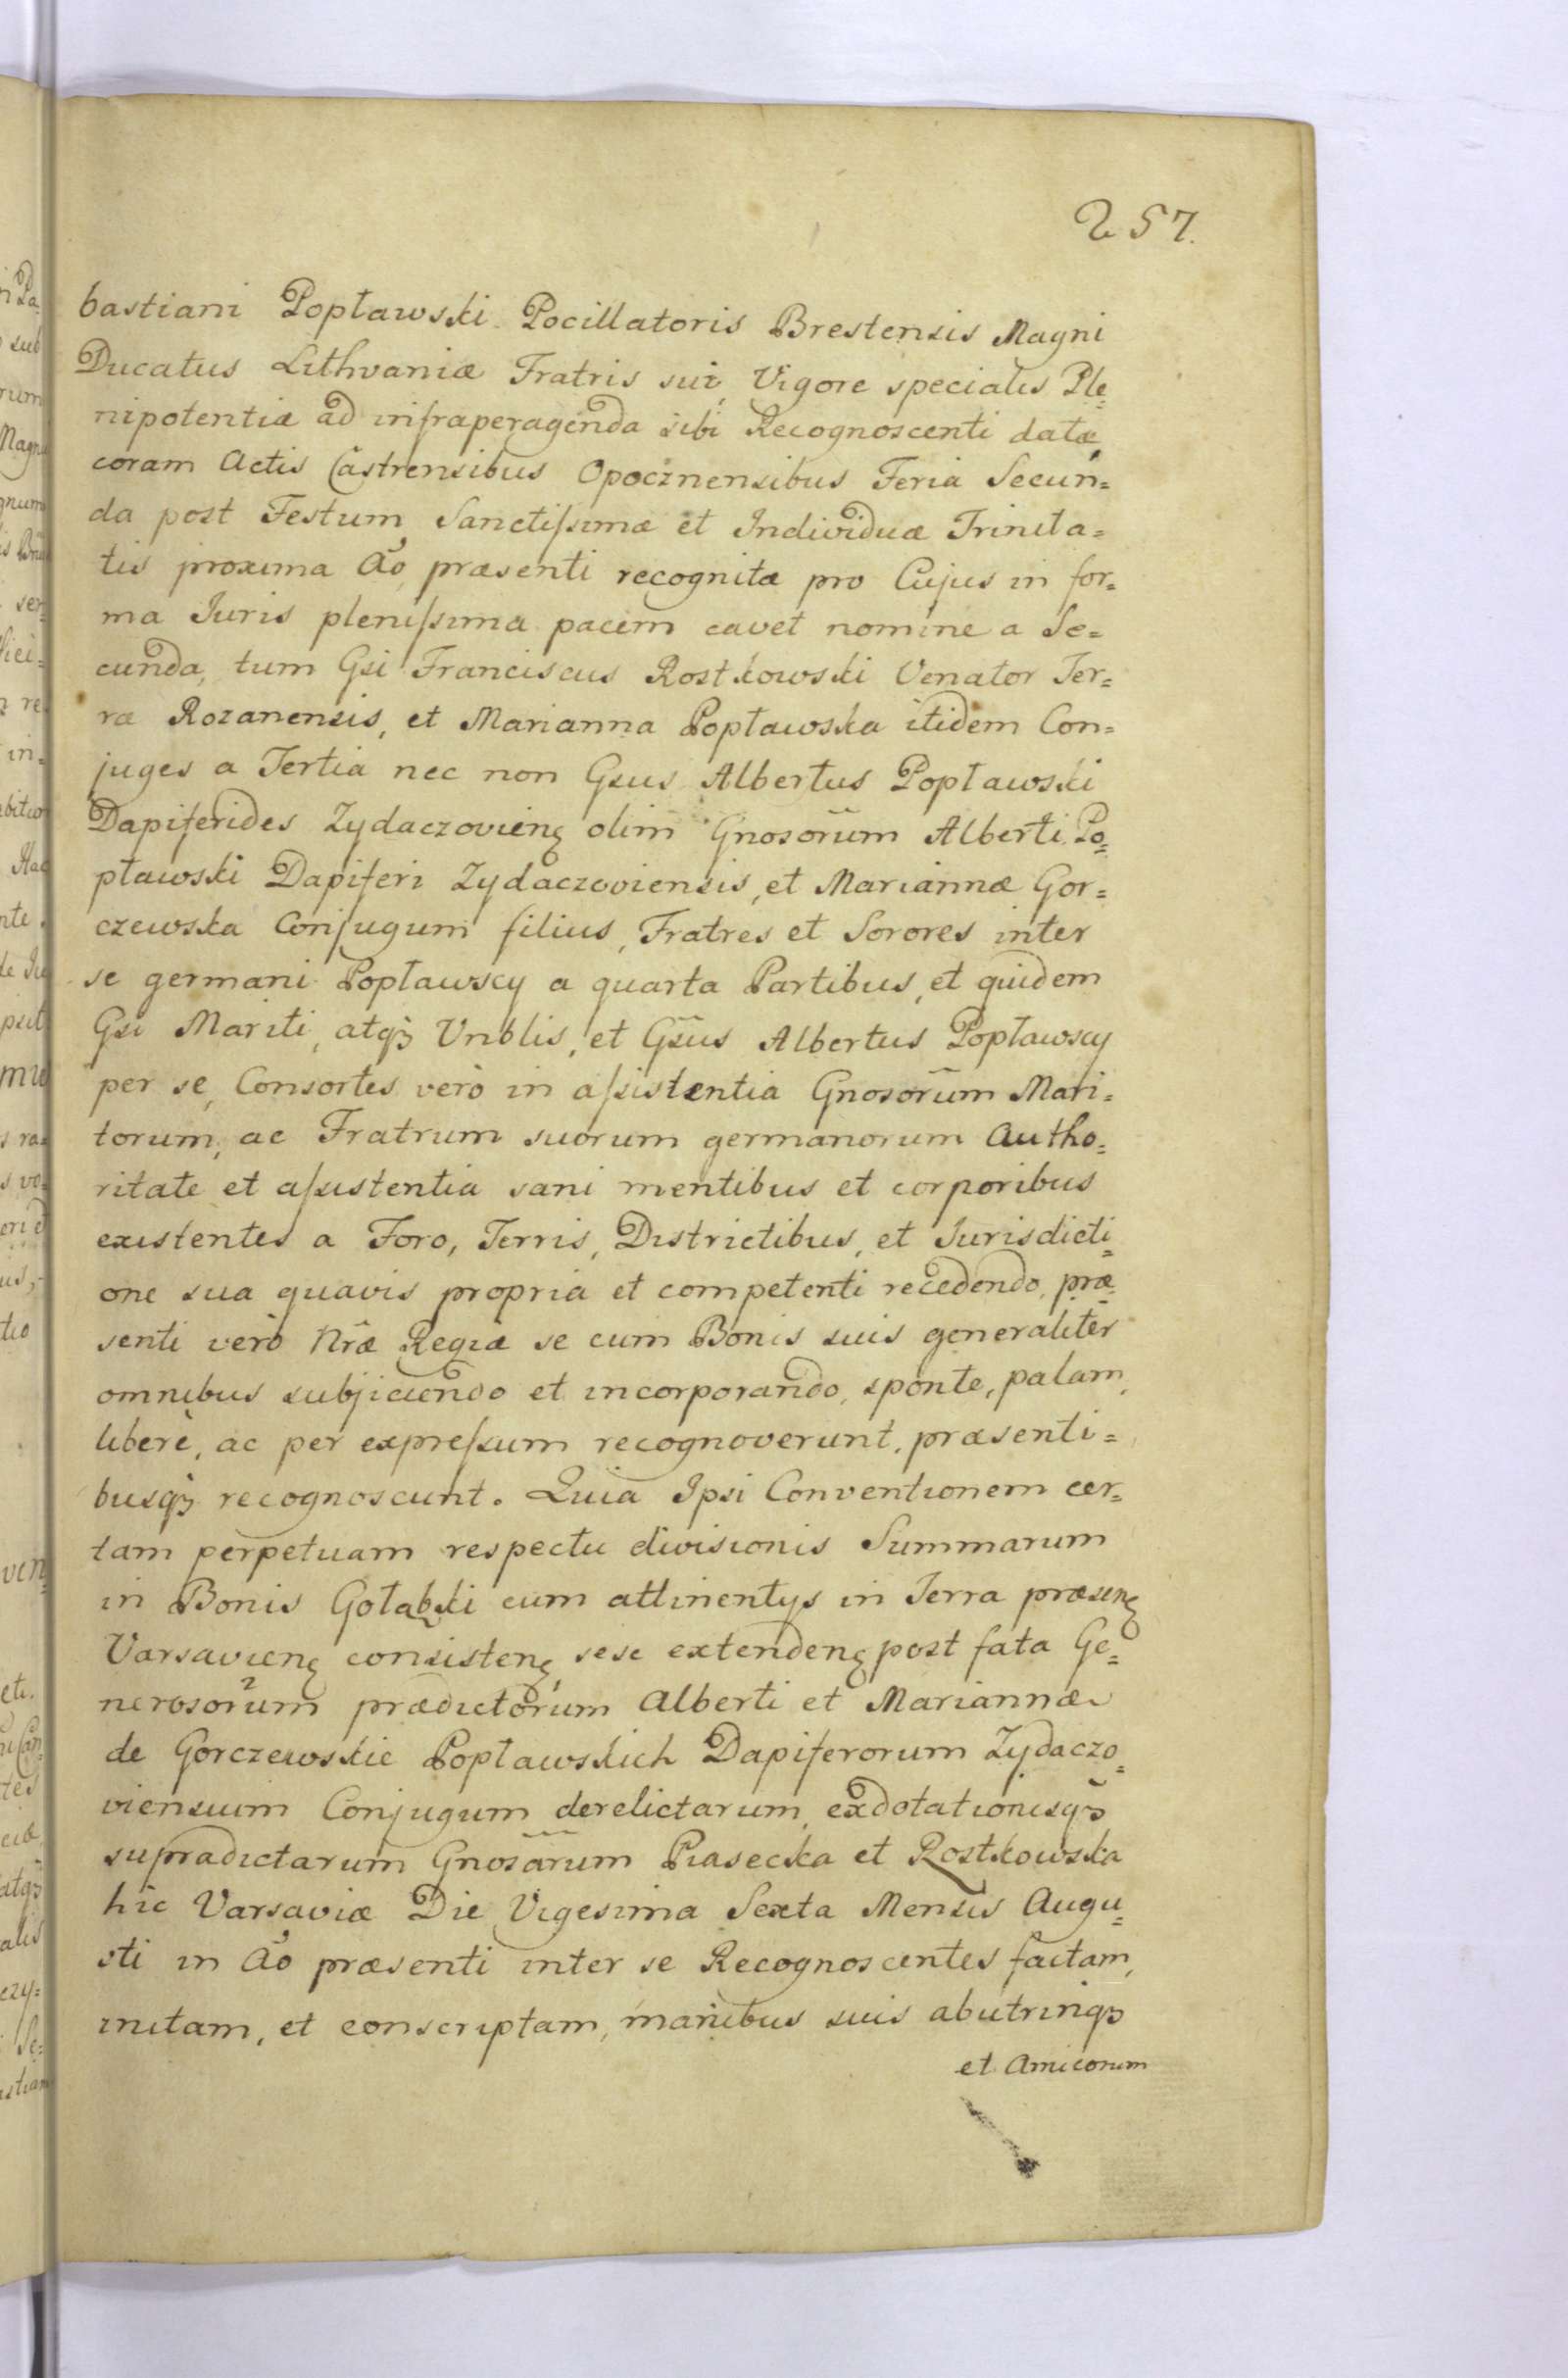 257.
bastiani Popławski Pocillatoris Brestensis Magni
Ducatus Lithvaniæ Fratris sui, Vigore specialis Ple=
nipotentiæ ad infraperagenda sibi Recognoscenti datæ,
coram Actis Castrensibus Opocznensibus Feria Secun=
da post Festum Sanctissimæ et Individuæ Trinita=
tis proxima Ao præsenti recognitæ pro Cujus in for=
ma Juris plenissima pacem cavet nomine a Se=
cunda, tum Gsi Franciscus Rostkowski Venator Ter=
ræ Rozanensis, et Marianna Popławska itidem Con=
juges a Tertia nec non Gsus Albertus Popławski
Dapiferides Zydaczovieng olim Gnosorum Alberti Po=
pławski Dapiferi Zydaczoviensis, et Mariannæ Gor=
czewska Conjugum filius, Fratres et Sorores inter
se germani Popławscy a quarta Partibus, et quidem
Gsi Mariti, atq3 Vnblis, et Gsus Albertus Popławscy
per se, Consortes verò in assistentia Gnosorum Mari=
torum, ac Fratrum suorum germanorum Autho=
ritate et assistentia sani mentibus et corporibus
existentes a Foro, Terris, Districtibus, et Jurisdicti=
one sua quavis propria et competenti recedendo, præ=
senti verò Nræ Regiæ se cum Bonis suis generaliter
omnibus subjiciendo et incorporando, sponte, palam,
liberè, ac per expressum recognoverunt, præsenti=
busq3 recognoscunt. Quia Ipsi Conventionem cer=
tam perpetuam respectu divisionis Summarum
in Bonis Gołąbki cum attinentys in Terra præseng
Varsavieng consisteng, sese extendeng post fata Ge=
nerosorum prædictorum Alberti et Mariannæ
de Gorczewskie Popławskich Dapiferorum Zydaczo=
viensium Conjugum derelictarum, exdotationisq3
supradictarum Gnosarum Piasecka et Rostkowska
hic Varsaviæ Die Vigesima Sexta Mensis Augu=
sti in Ao præsenti inter se Recognoscentes factam,
initam, et conscriptam, manibus suis abutrinq3
et Amicorum